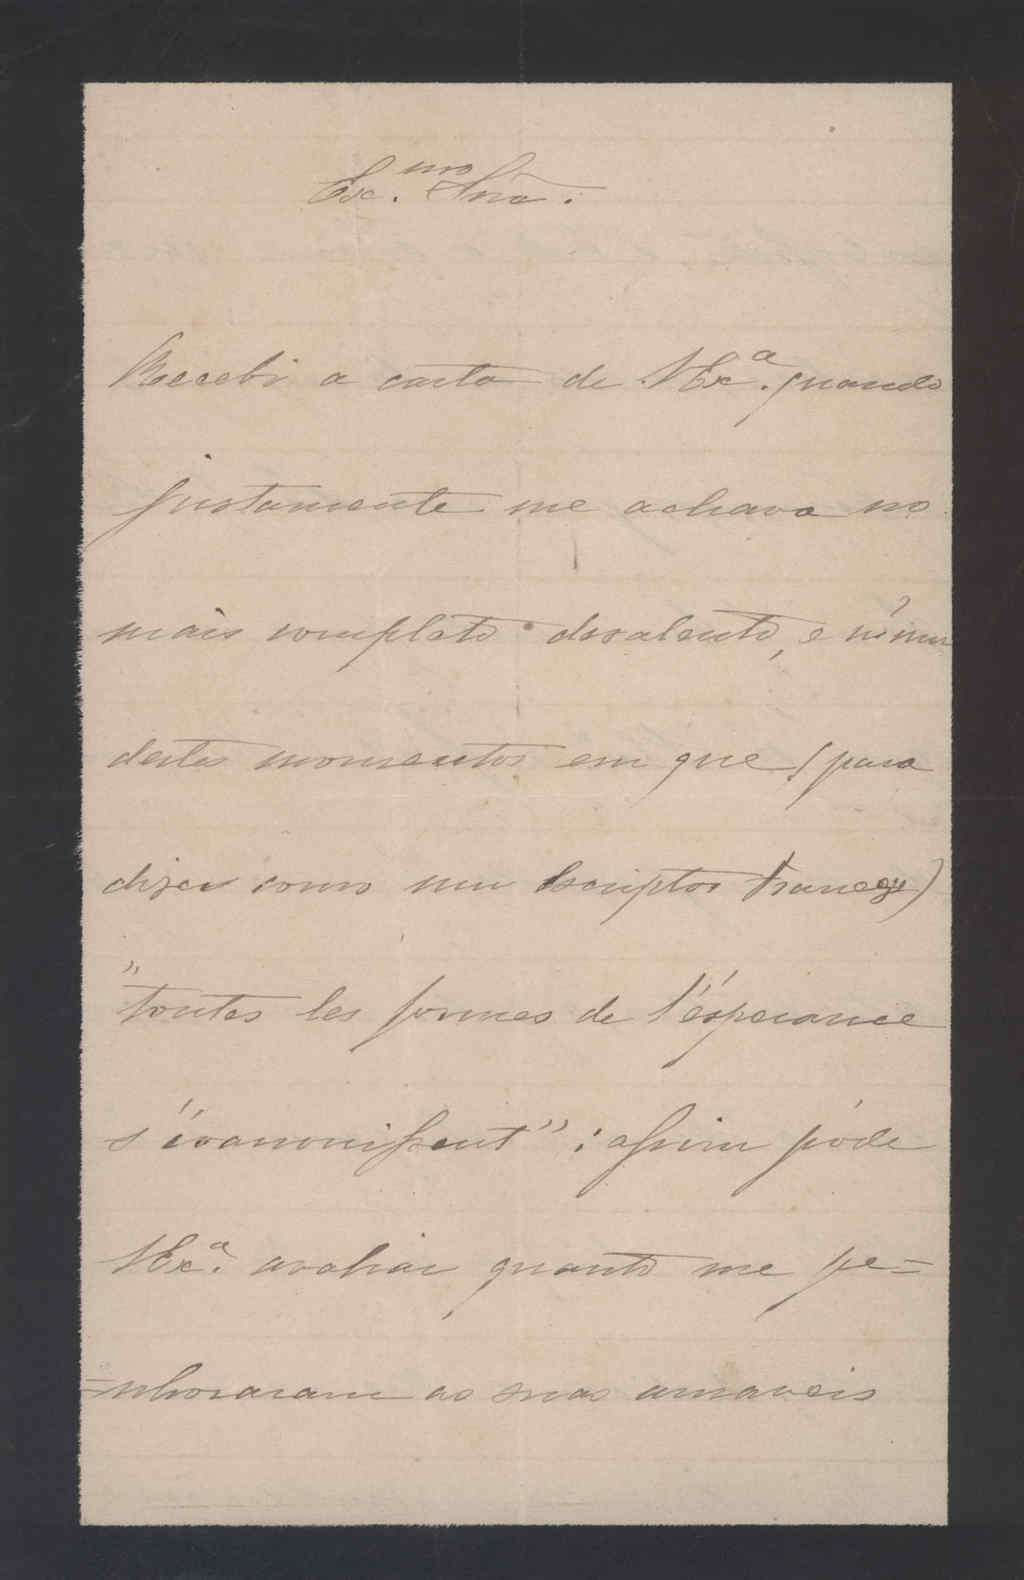 Exc.ma Snra.
Recebi a carta de V.Ex.a quando
justamente me achava no
mais completo desalento, e n'um
destes momentos em que (para
dizer como um Escriptor Francez)
"toutes les formes de l'ésperance
s'évanouissent": assim póde
V.Ex.a avaliar quanto me pe=
=nhoraram as suas amaveis